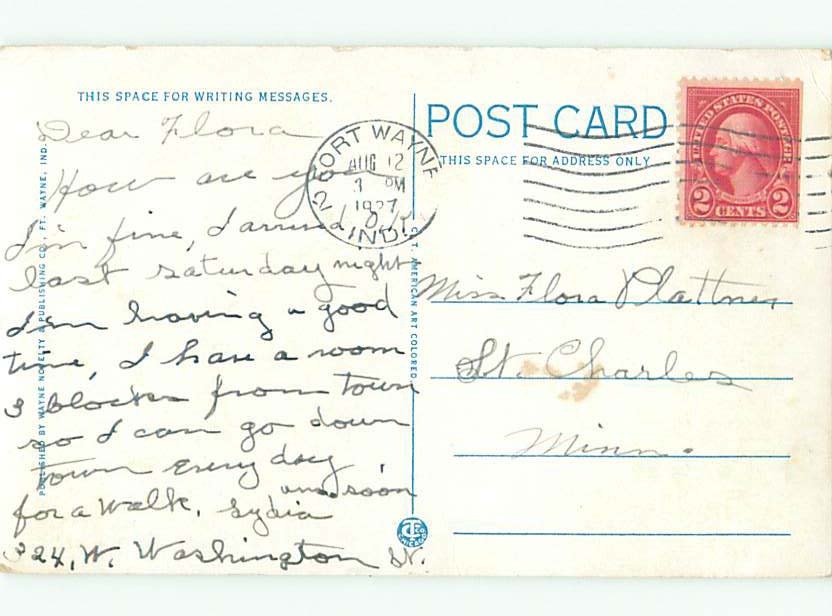 THIS SPACE FOR WRITING MESSAGES.
Dear Flora
How are you
I'm fine, I arrived O.K.
last saturday night
I'm having a good
time, I have a room
3 blocks from town
so I can go down
town every day
ans soon
for a walk. Lydia
324, W. Washington St.
PUBLISHED BY WAYNE NOVELTY & PUBLISHING CO., FT. WAYNE, IND.
FORT WAYNE
2
AUG 12
3 PM
1927
IND.
POST CARD
THIS SPACE FOR ADDRESS ONLY
UNITED STATES POSTAGE
2 CENTS 2
C.T. AMERICAN ART COLORED
Miss Flora Plattner
St. Charles
Minn.
CHICAGO